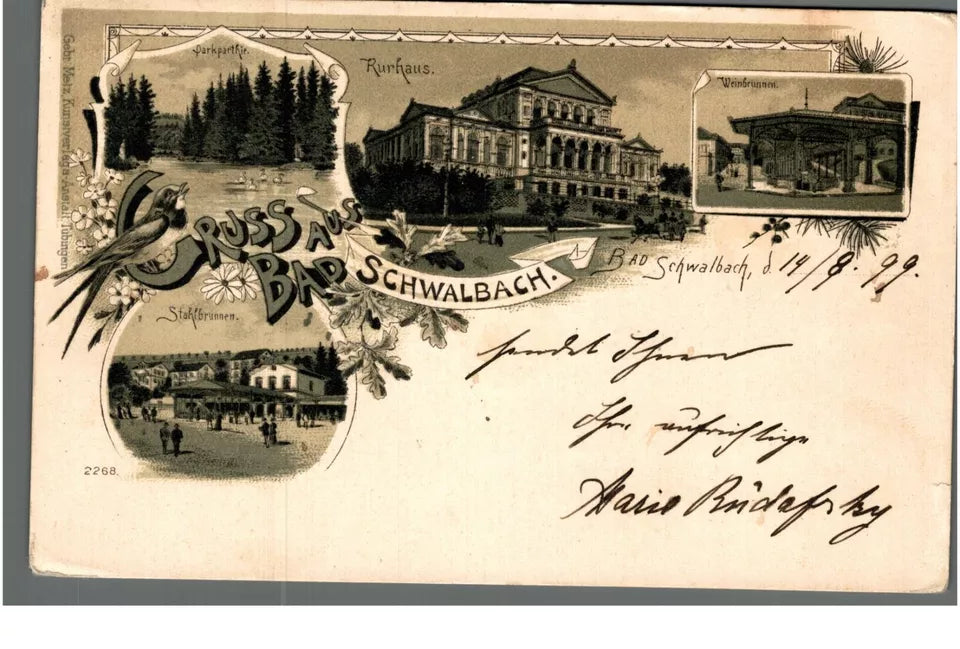 Parkparthie.
Kurhaus.
Weinbrunnen.
GRUSS AUS
BAD SCHWALBACH.
BAD Schwalbach, d. 14/8. 99.
Stahlbrunnen.
sendet Ihnen
Ihre aufrichtige
Marie
2268.
Gebr. Metz, Kunstverlags-Anstalt, Tübingen